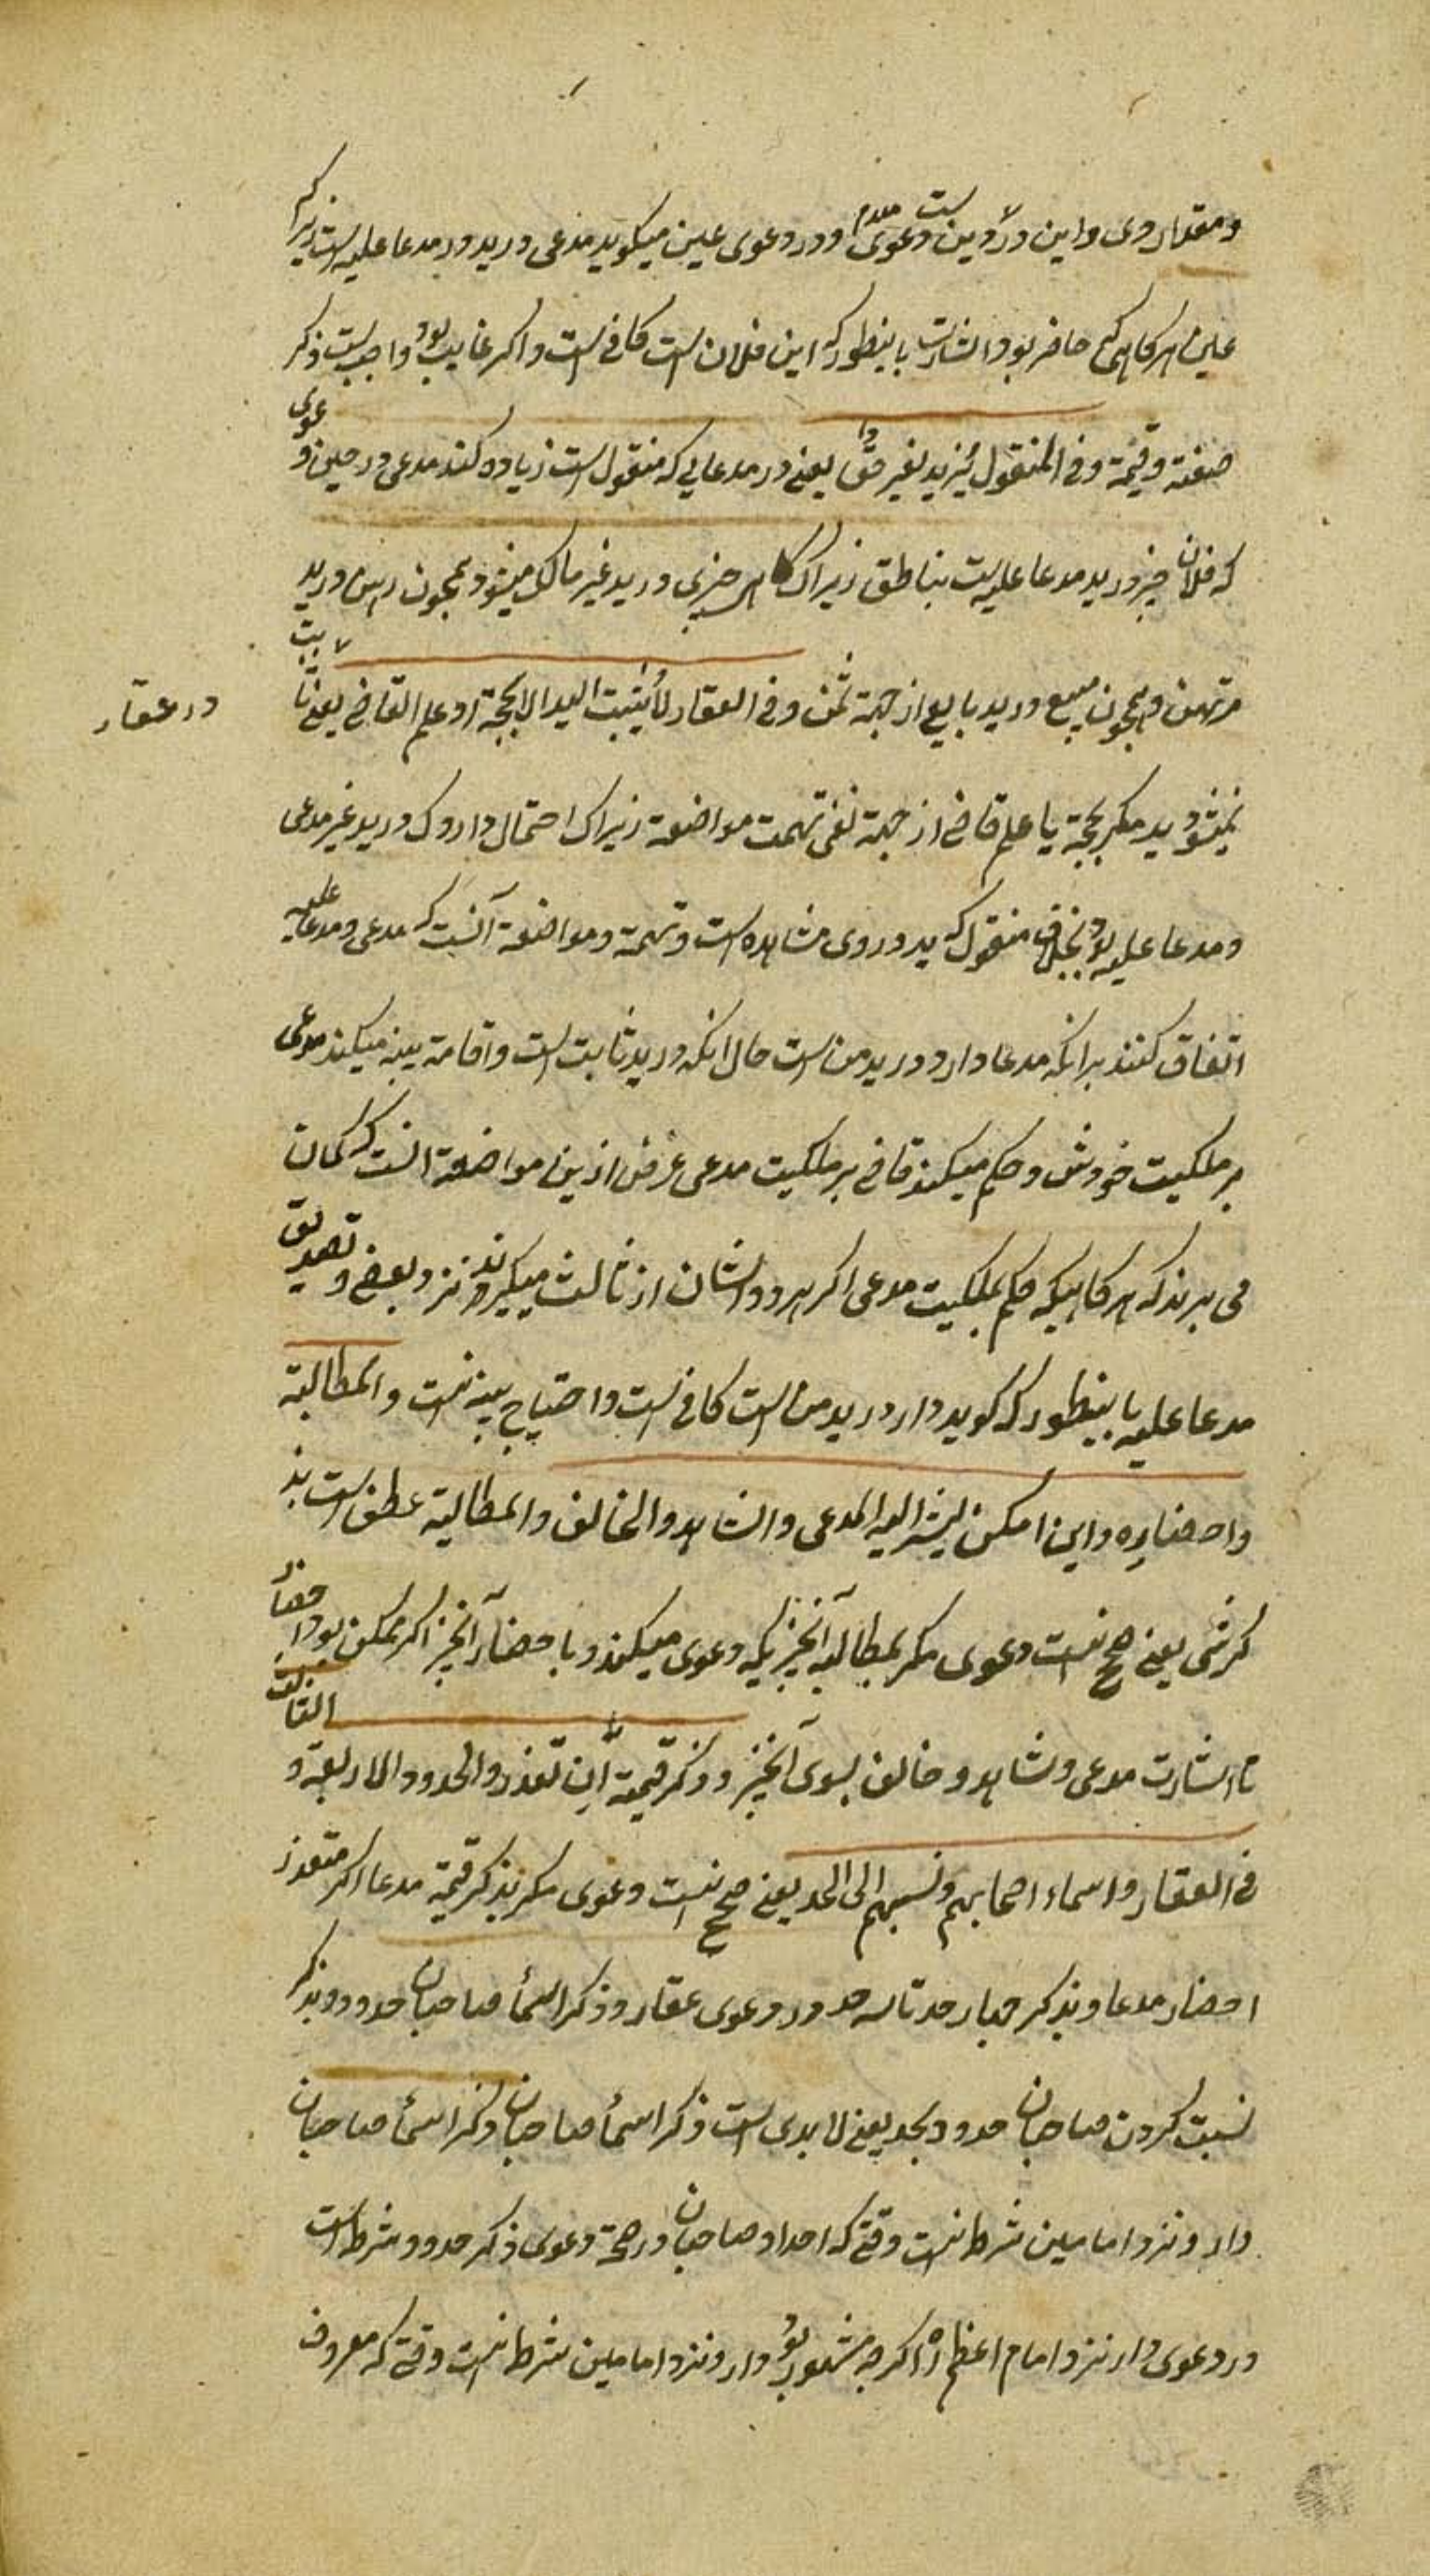 ومقدار وی واین در دین است ودعوی ودر دعوی عین میکوید مدعی در ید مدعا علیه است زیراکه
عین هرکاهی که حاضر بود اشارت باینطور که این فلان است کافی است واکر غایب بود واجب است ذکر
صفته وقیمة وفی المنقول یزید بغیر حق یعنی در مدعایی که منقول است زیاده کند مدعی در حین دعوی
که فلان چیز در ید مدعا علیه است بناحق زیراک کاهی چیزی در ید غیر مالک میشود همچون رهن در ید
مرتهن وهمچون مبیع در ید بایع از جهة ثمن وفی العقار لا یثبت الید الا بحجة او علم القاضی یعنی ثابت
در عقار
نمیشود ید مکر بحجة یا علم قاضی از جهة نفی تهمت مواضعة زیراک احتمال دارد ک در ید غیر مدعی
ومدعا علیه بود بخلاف منقول که ید در وی مشاهده است وتهمة ومواضعة آنست که مدعی ومدعا علیه
اتفاق کنند برانکه مدعا دارد در ید من است حال انکه در ید ثابت است واقامة بینه میکند مدعی
بر ملکیت خودش وحکم میکند قاضی بر ملکیت مدعی غرض ازین مواضعة انست که کمان
می برند که هرکاهیکه حکم بملکیت مدعی اکر هر دو ایشان از ثالث میکیرند ونزد بعضی تصدیق
مدعا علیه باینطور که کوید دار در ید من است کافی است واحتیاج ببینه نیست والمطالبة
واحضاره واین امکن لیشیر الیه المدعی والشاهد والحالف والمطالبة عطف است بذ
کر شی یعنی صحیح نیست دعوی مکر بمطالبه آنچیزیکه دعوی میکند وباحضار آنچیز اکر ممکن بود احضار
تا اشارت مدعی وشاهد وحالف بسوی آنچیز وذکر قیمته ان تعذر والحدود الاربعة و
فی العقار واسماء اصحابهم ونسبهم الی الجد یعنی صحیح نیست دعوی مکر بذکر قیمة مدعا اکر متعذر
احضار مدعا وبذکر چهار حد تا سه حد در دعوی عقار وذکر اسماء صاحبان حدود وبذکر
نسبت کردن صاحبان حدود بجد یعنی لابدی است ذکر اسماء صاحبان وذکر اسماء صاحبان
دار ونزد امامین شرط نیست وقتی که اجداد صاحبان در صحة دعوی ذکر حدود شرط است
در دعوی دار نزد امام اعظم اکرچه مشهور بود دار ونزد امامین شرط نیست وقتی که معروف